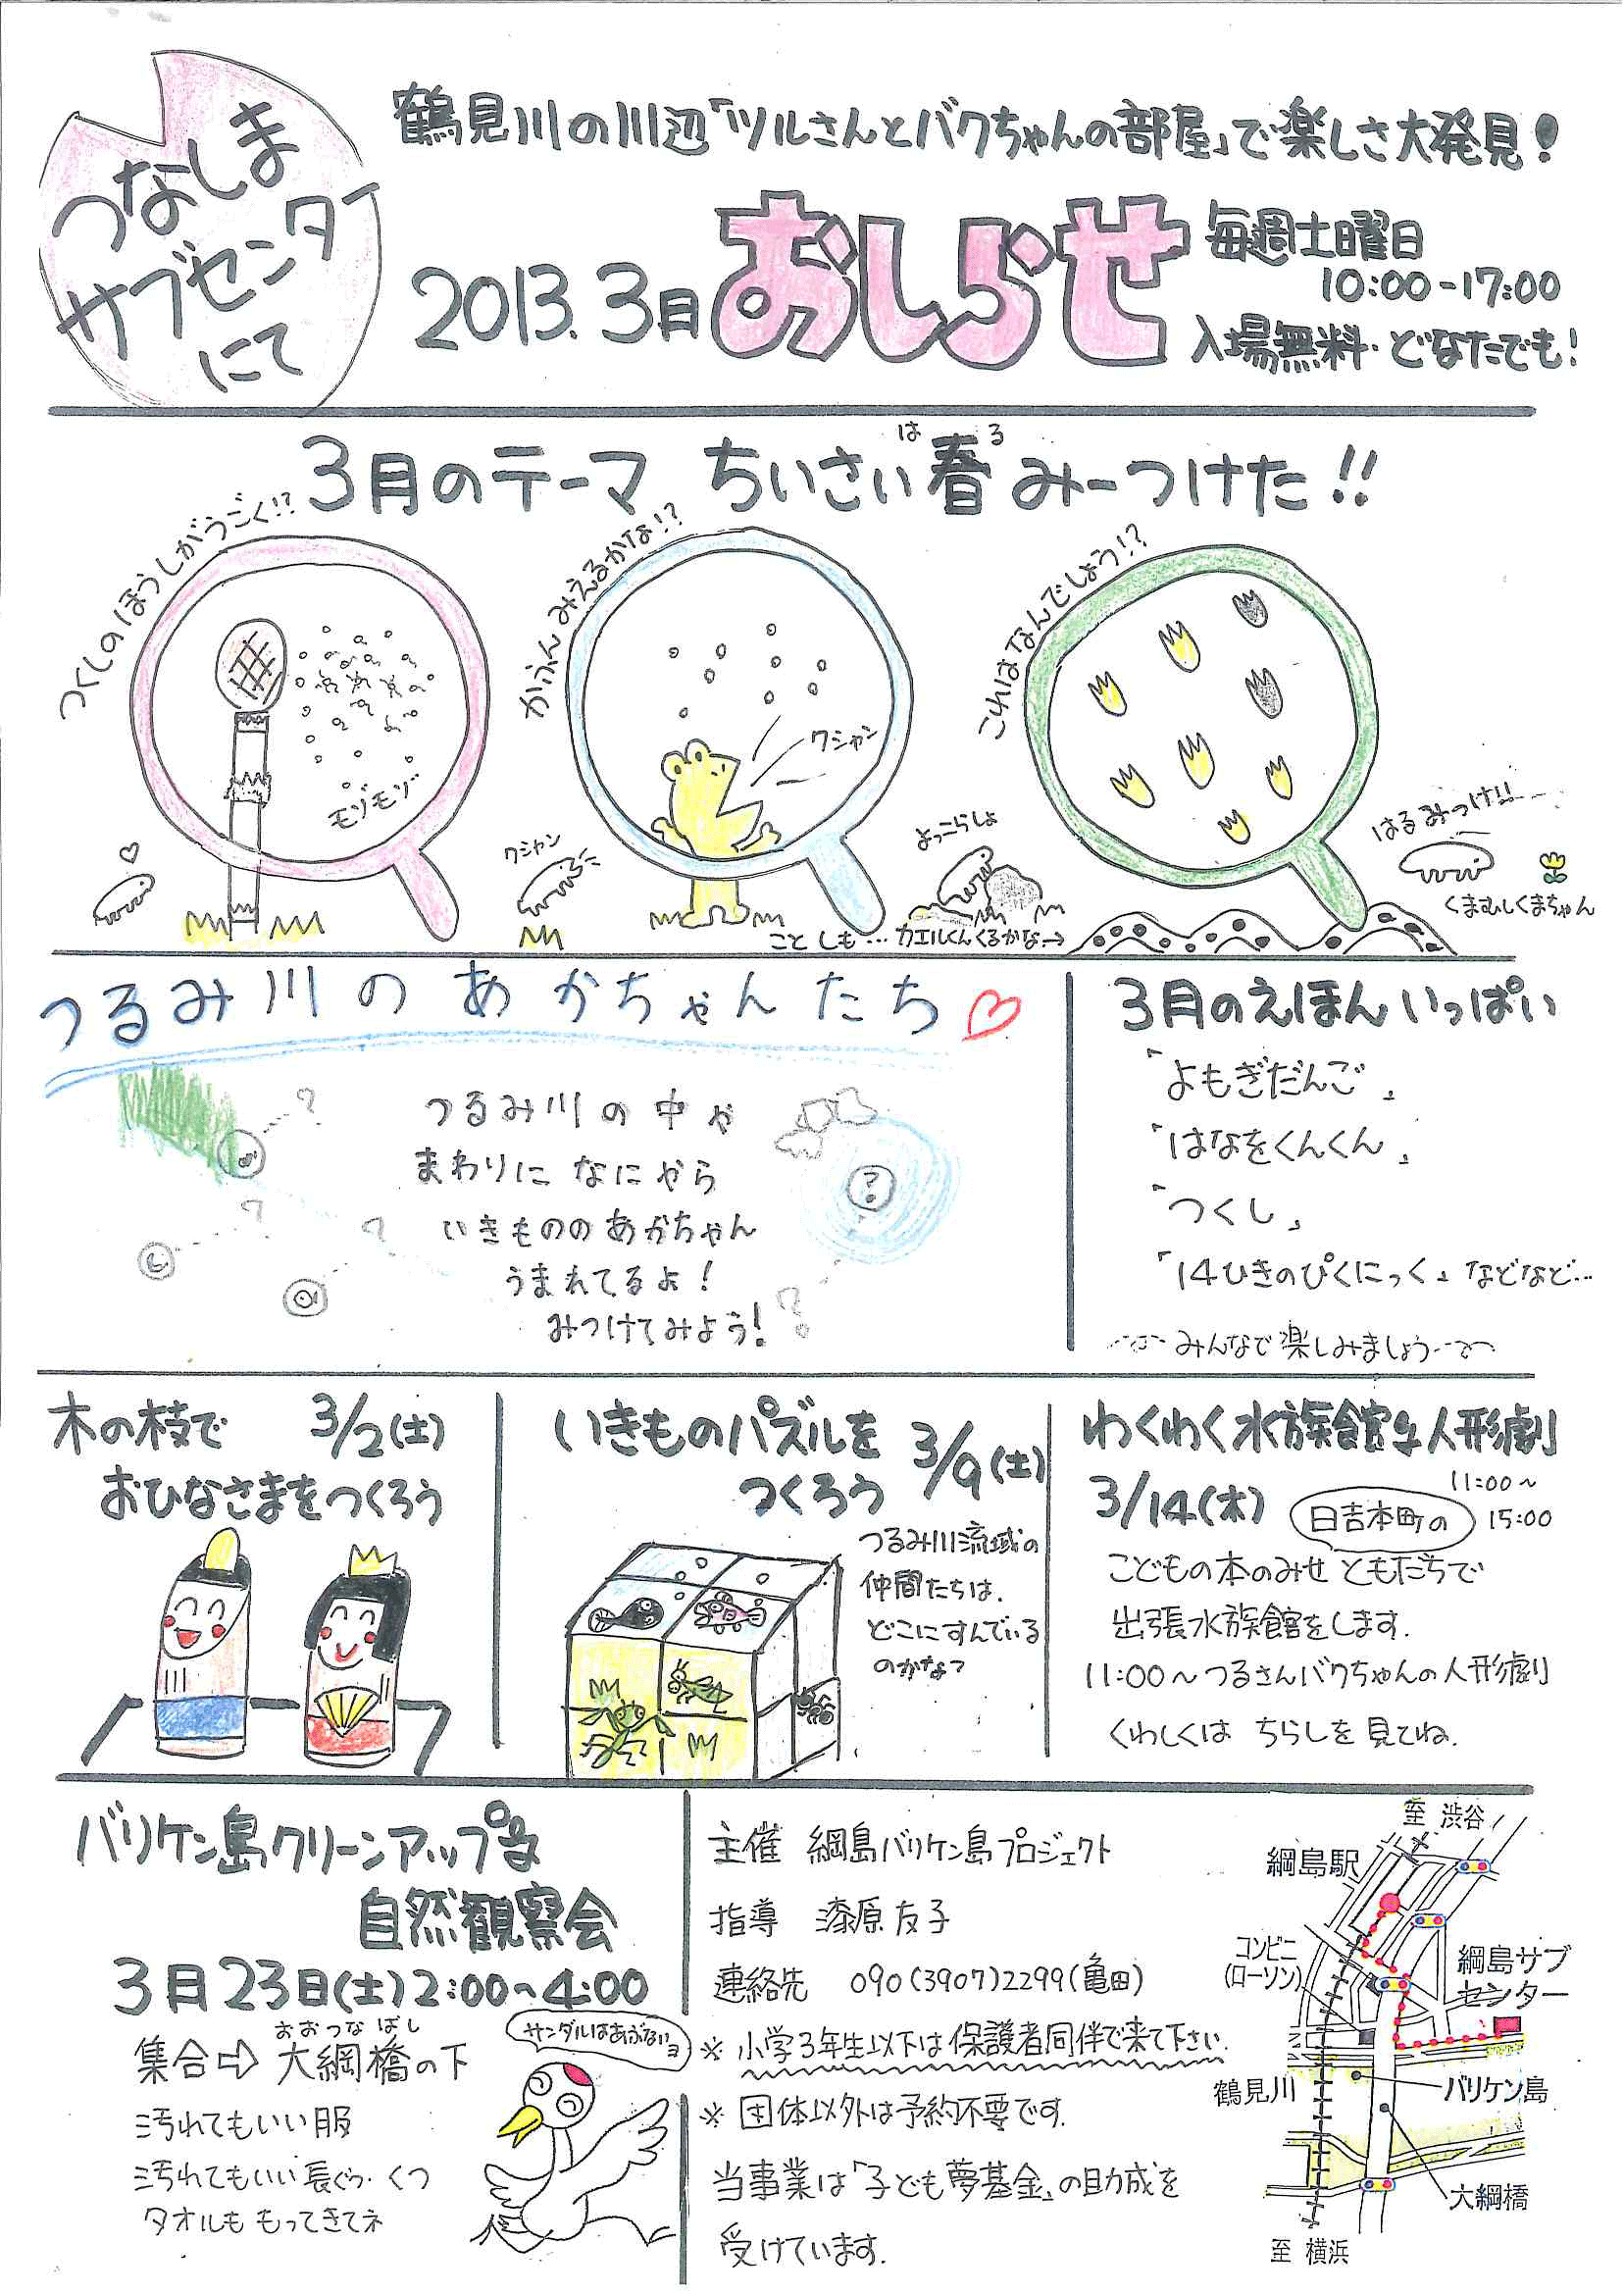 つなしま
サブセンター
にて
鶴見川の川辺「ツルさんとバクちゃんの部屋」で楽しさ大発見!
2013.3月 おしらせ
毎週土曜日
10:00-17:00
入場無料・どなたでも!
3月のテーマ ちいさい春みーつけた!!
はる
つくしのほうしがうごく!?
モゾモゾ
かふんみえるかな!?
クシャン
これはなんでしょう!?
クシャン
よっこらしょ
はるみっけ!!
くまむしくまちゃん
ことしも…カエルくんくるかな→
つるみ川のあかちゃんたち
つるみ川の中や
まわりに なにやら
いきもののあかちゃん
うまれてるよ!
みつけてみよう!
?
?
?
?
?
3月のえほんいっぱい
「よもぎだんご」
「はなをくんくん」
「つくし」
「14ひきのぴくにっく」などなど…
みんなで楽しみましょう
木の枝で 3/2(土)
おひなさまをつくろう
いきものパズルを
つくろう
3/9(土)
つるみ川流域の
仲間たちは、
どこにすんでいる
のかな?
わくわく水族館&人形劇
3/14(木) 11:00~
15:00
日吉本町の
こどもの本のみせ ともだちで
出張水族館をします.
11:00~つるさんバクちゃんの人形劇
くわしくは ちらしを見てね.
バリケン島クリーンアップ&
自然観察会
3月23日(土)2:00~4:00
おおつなばし
集合⇨大綱橋の下
汚れてもいい服
汚れてもいい長ぐつ・くつ
タオルも もってきてネ
サンダルはあぶないヨ
主催 綱島バリケン島プロジェクト
指導 漆原友子
連絡先 090(3907)2299(亀田)
※ 小学3年生以下は保護者同伴で来て下さい.
※ 団体以外は予約不要です.
当事業は「子ども夢基金」の助成を
受けています.
至 渋谷
綱島駅
コンビニ
(ローソン)
綱島サブ
センター
鶴見川
バリケン島
大綱橋
至 横浜